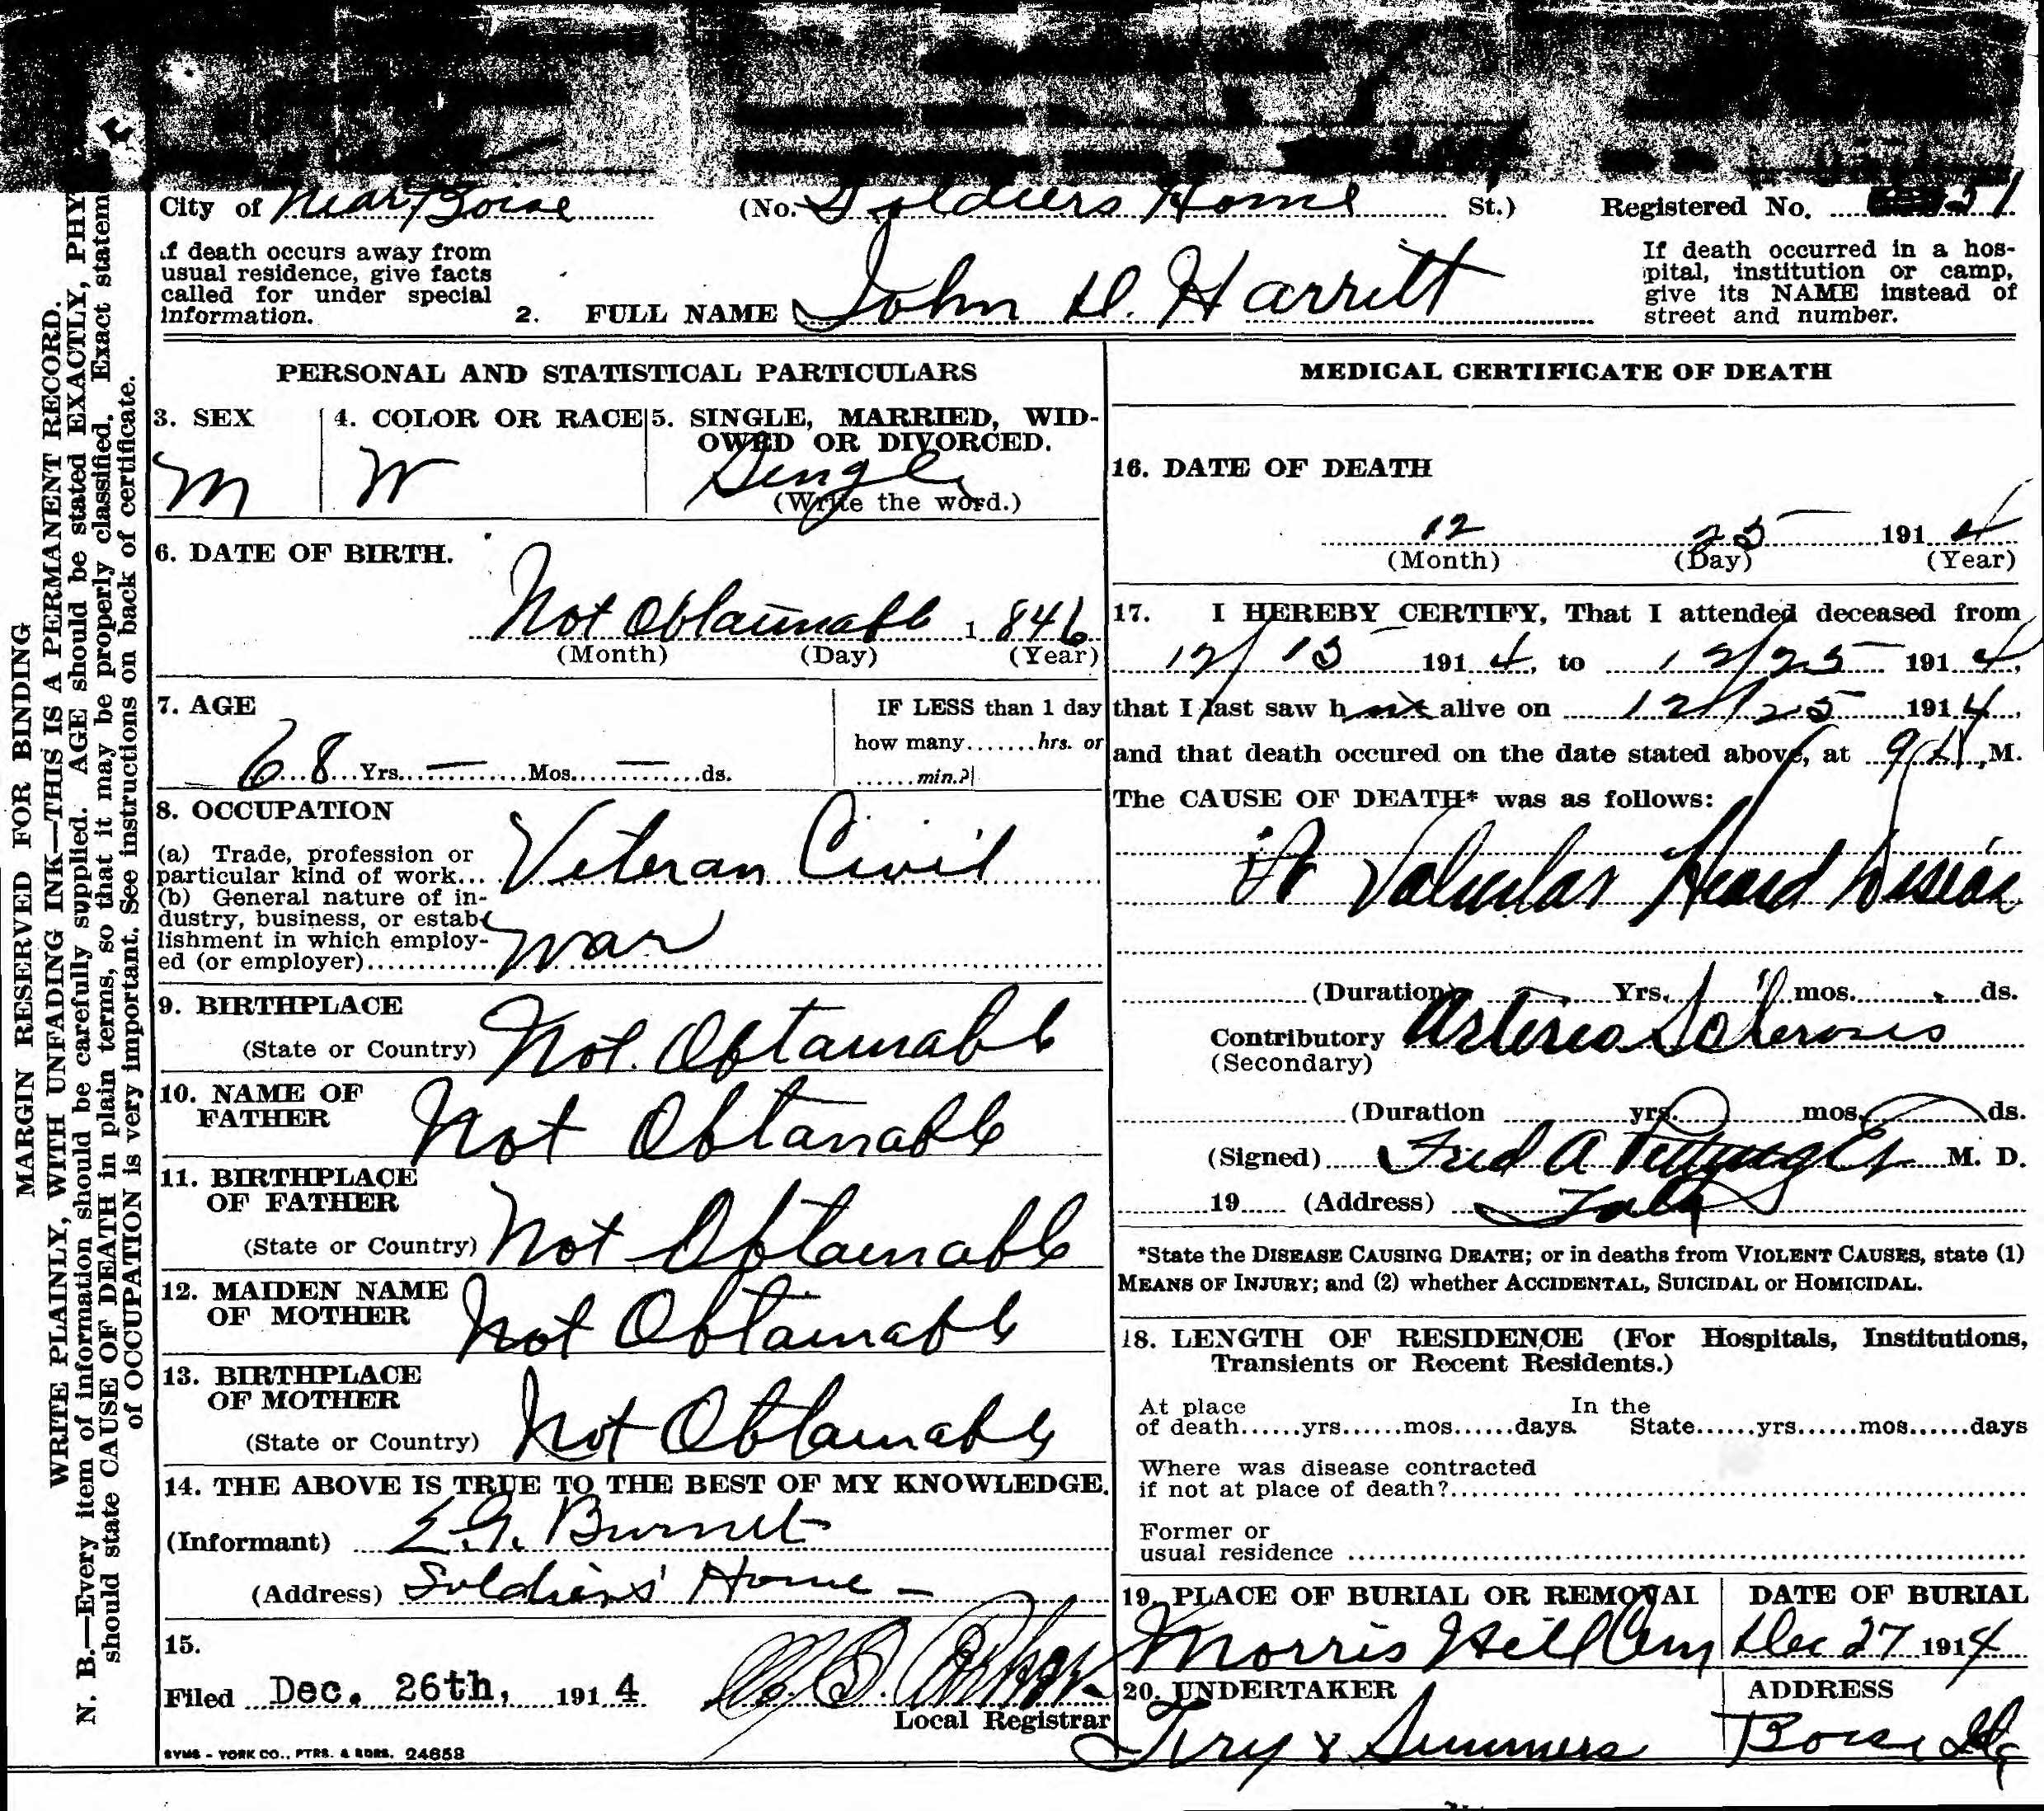 City of Near Boise (No. Soldiers Home St.) Registered No. 31
If death occurs away from
usual residence, give facts
called for under special
information.
If death occurred in a hos-
pital, institution or camp,
give its NAME instead of
street and number.
2. FULL NAME John D. Harritt
MARGIN RESERVED FOR BINDING
WRITE PLAINLY, WITH UNFADING INK—THIS IS A PERMANENT RECORD.
N. B.—Every item of information should be carefully supplied. AGE should be stated EXACTLY, PHY
should state CAUSE OF DEATH in plain terms, so that it may be properly classified. Exact statem
of OCCUPATION is very important. See instructions on back of certificate.
PERSONAL AND STATISTICAL PARTICULARS
3. SEX
M
4. COLOR OR RACE
W
5. SINGLE, MARRIED, WID-
OWED OR DIVORCED.
Single
(Write the word.)
6. DATE OF BIRTH.
Not Obtainable 1846
(Month) (Day) (Year)
7. AGE
68 Yrs. — Mos. — ds.
IF LESS than 1 day
how many.......hrs. or
......min.?
8. OCCUPATION
(a) Trade, profession or
particular kind of work... Veteran Civil
(b) General nature of in-
dustry, business, or estab-
lishment in which employ-
ed (or employer) War
9. BIRTHPLACE
(State or Country) Not Obtainable
10. NAME OF
FATHER Not Obtanable
11. BIRTHPLACE
OF FATHER
(State or Country) Not Obtainable
12. MAIDEN NAME
OF MOTHER Not Obtainable
13. BIRTHPLACE
OF MOTHER
(State or Country) Not Obtainable
14. THE ABOVE IS TRUE TO THE BEST OF MY KNOWLEDGE.
(Informant) E.G. Burnet
(Address) Soldiers' Home —
15.
Filed Dec. 26th, 1914
Local Registrar
SYMS - YORK CO., PTRS. & BDRS. 24658
MEDICAL CERTIFICATE OF DEATH
16. DATE OF DEATH
12 25 1914
(Month) (Day) (Year)
17. I HEREBY CERTIFY, That I attended deceased from
12/13 1914, to 12/25 1914,
that I last saw h alive on 12/25 1914,
and that death occured on the date stated above, at 9 M.
The CAUSE OF DEATH* was as follows:
Valvular Heart
(Duration) Yrs. mos. ds.
Contributory Arterio Sclerosis
(Secondary)
(Duration yrs. mos. ds.
(Signed) Fred A Pittenger M. D.
19 (Address)
*State the DISEASE CAUSING DEATH; or in deaths from VIOLENT CAUSES, state (1)
MEANS OF INJURY; and (2) whether ACCIDENTAL, SUICIDAL or HOMICIDAL.
18. LENGTH OF RESIDENCE (For Hospitals, Institutions,
Transients or Recent Residents.)
At place In the
of death......yrs......mos......days. State......yrs......mos......days
Where was disease contracted
if not at place of death?
Former or
usual residence
19. PLACE OF BURIAL OR REMOVAL
Morris Hill Cem
DATE OF BURIAL
Dec 27 1914
20. UNDERTAKER
Fry & Summers
ADDRESS
Boise Ida